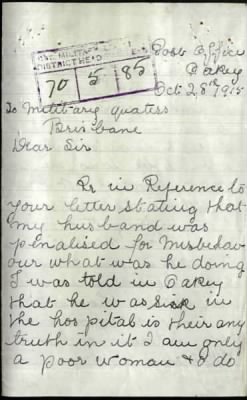 Post Office
Oakey
Oct 28th 1915
MILITARY
DISTRICT HEAD
70 5 85
To Military quaters
Brisbane
Dear Sir
Rr in Reference to
your letter stating that
my husband was
penalised for Misbehav
our what was he doing
I was told in Oakey
that he was sick in
the hospital is their any
truth in it I am only
a poor woman & I do